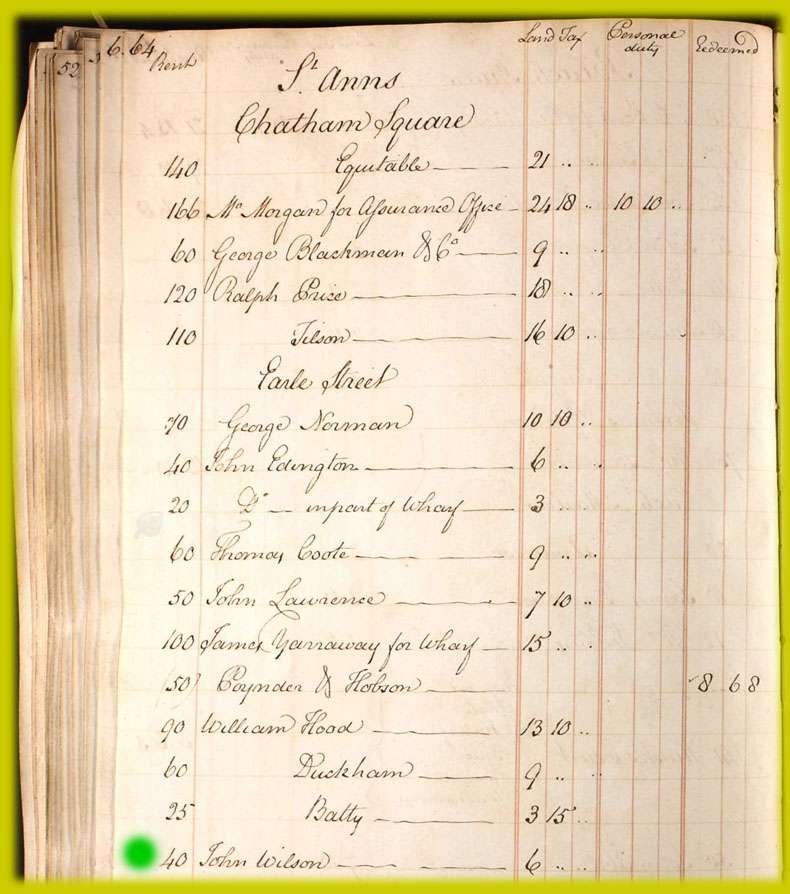 52 6.64
Rent Land Tax Personal duty Redeemed
St Anns
Chatham Square
140 Equitable 21 .. ..
166 Mr Morgan for Assurance Office 24 18 .. 10 10 ..
60 George Blackman & Co 9 .. ..
120 Ralph Price 18 .. ..
110 Tilson 16 10 ..
Earle Street
70 George Norman 10 10 ..
40 John Edington 6 .. ..
20 Do in part of Wharf 3 .. ..
60 Thomas Coote 9 .. ..
50 John Lawrence 7 10 ..
100 James Yarraway for Wharf 15 .. ..
(50) Poynder & Hobson 8 6 8
90 William Hood 13 10 ..
60 Duckham 9 .. ..
25 Batty 3 15 ..
40 John Wilson 6 .. ..